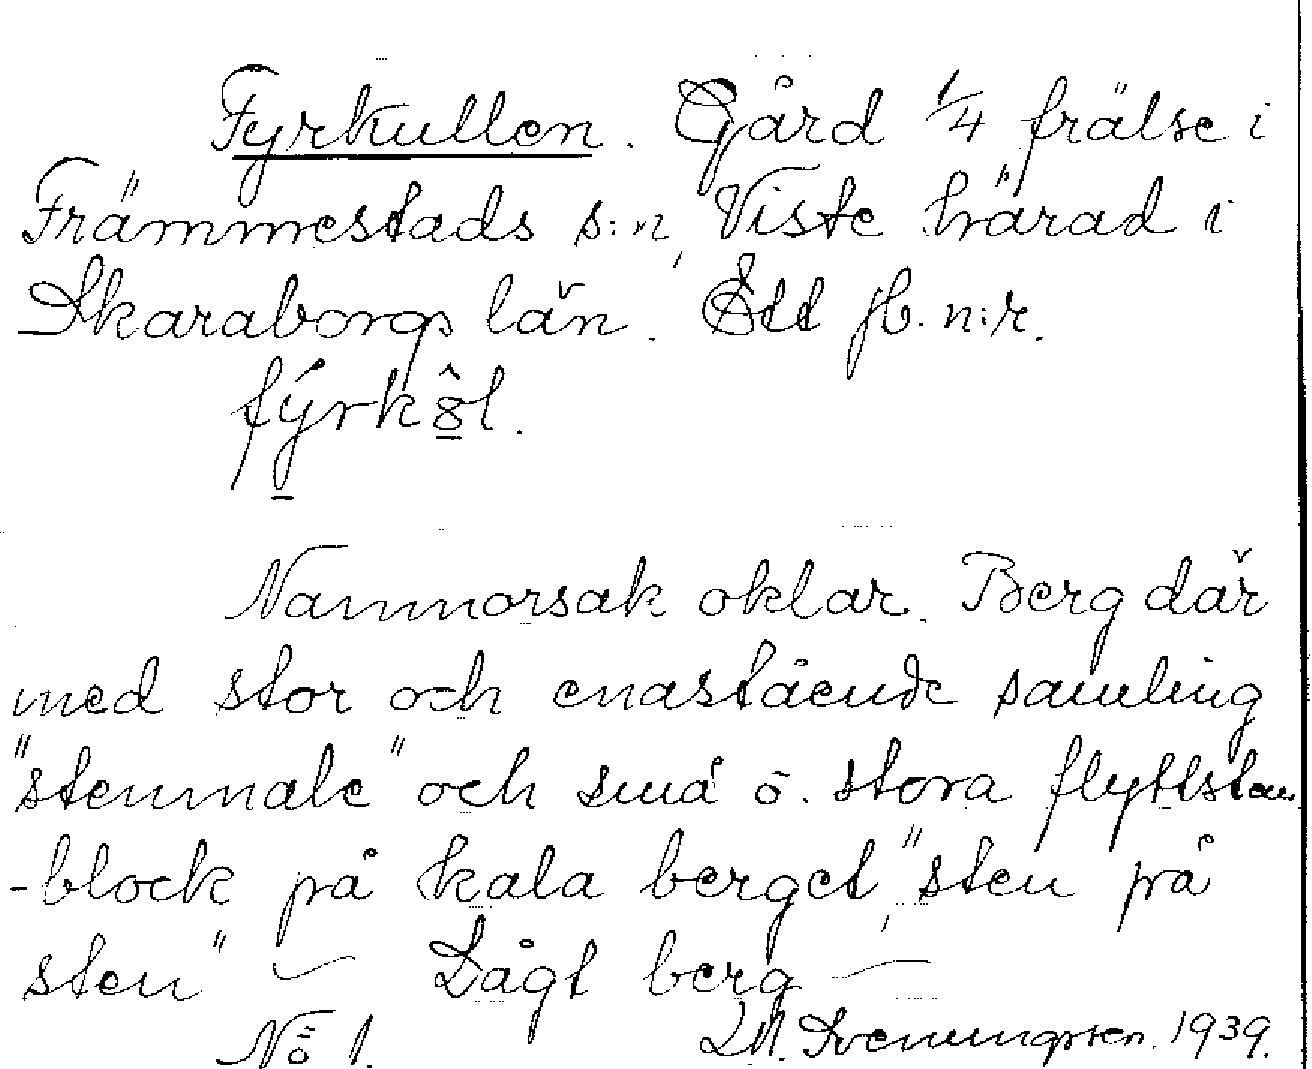 Fyrkullen. Gård 1/4 frälse i
Främmestads s:n, Viste härad i
Skaraborgs län. Ett jb. n:r.
fýrkô̲l.
Namnorsak oklar. Berg där
med stor och enastående samling
"stenmale" och små o. stora flyttsten
-block på kala berget, "sten på
sten" — Lågt berg —
No 1. LM. Svenungsson. 1939.